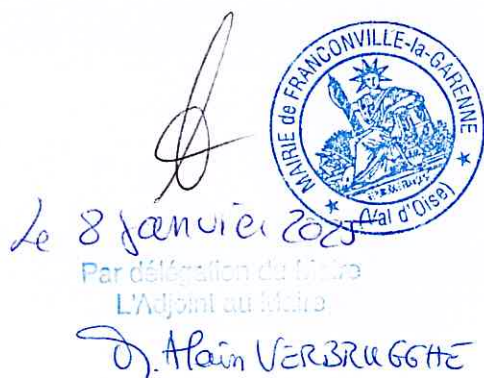 MAIRIE de FRANCONVILLE-la-GARENNE
(Val d'Oise)
Le 8 Janvier 2025
Par délégation du Maire
L'Adjoint au Maire,
Alain VERBRUGGHE